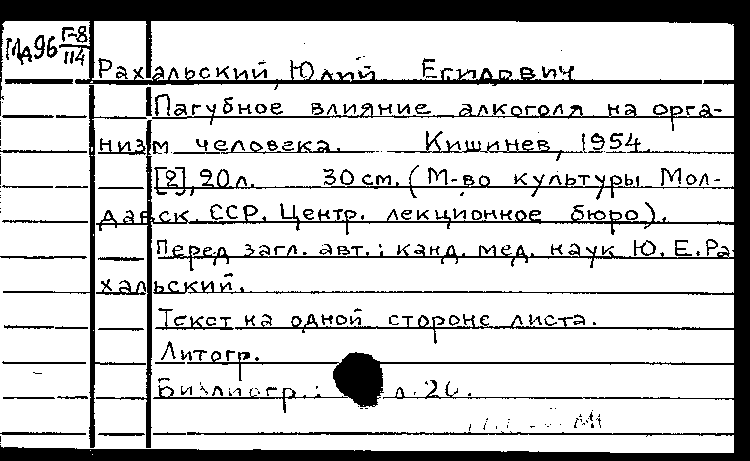 МД96 Г-8/114
Рахальский, Юлий Егидович
Пагубное влияние алкоголя на орга-
низм человека. Кишинев, 1954.
[2], 20 л. 30 см. (М-во культуры Мол-
давск. ССР. Центр. лекционное бюро).
Перед загл. авт.: канд. мед. наук Ю. Е. Ра-
хальский.
Текст на одной стороне листа.
Литогр.
Библиогр.: л. 20.